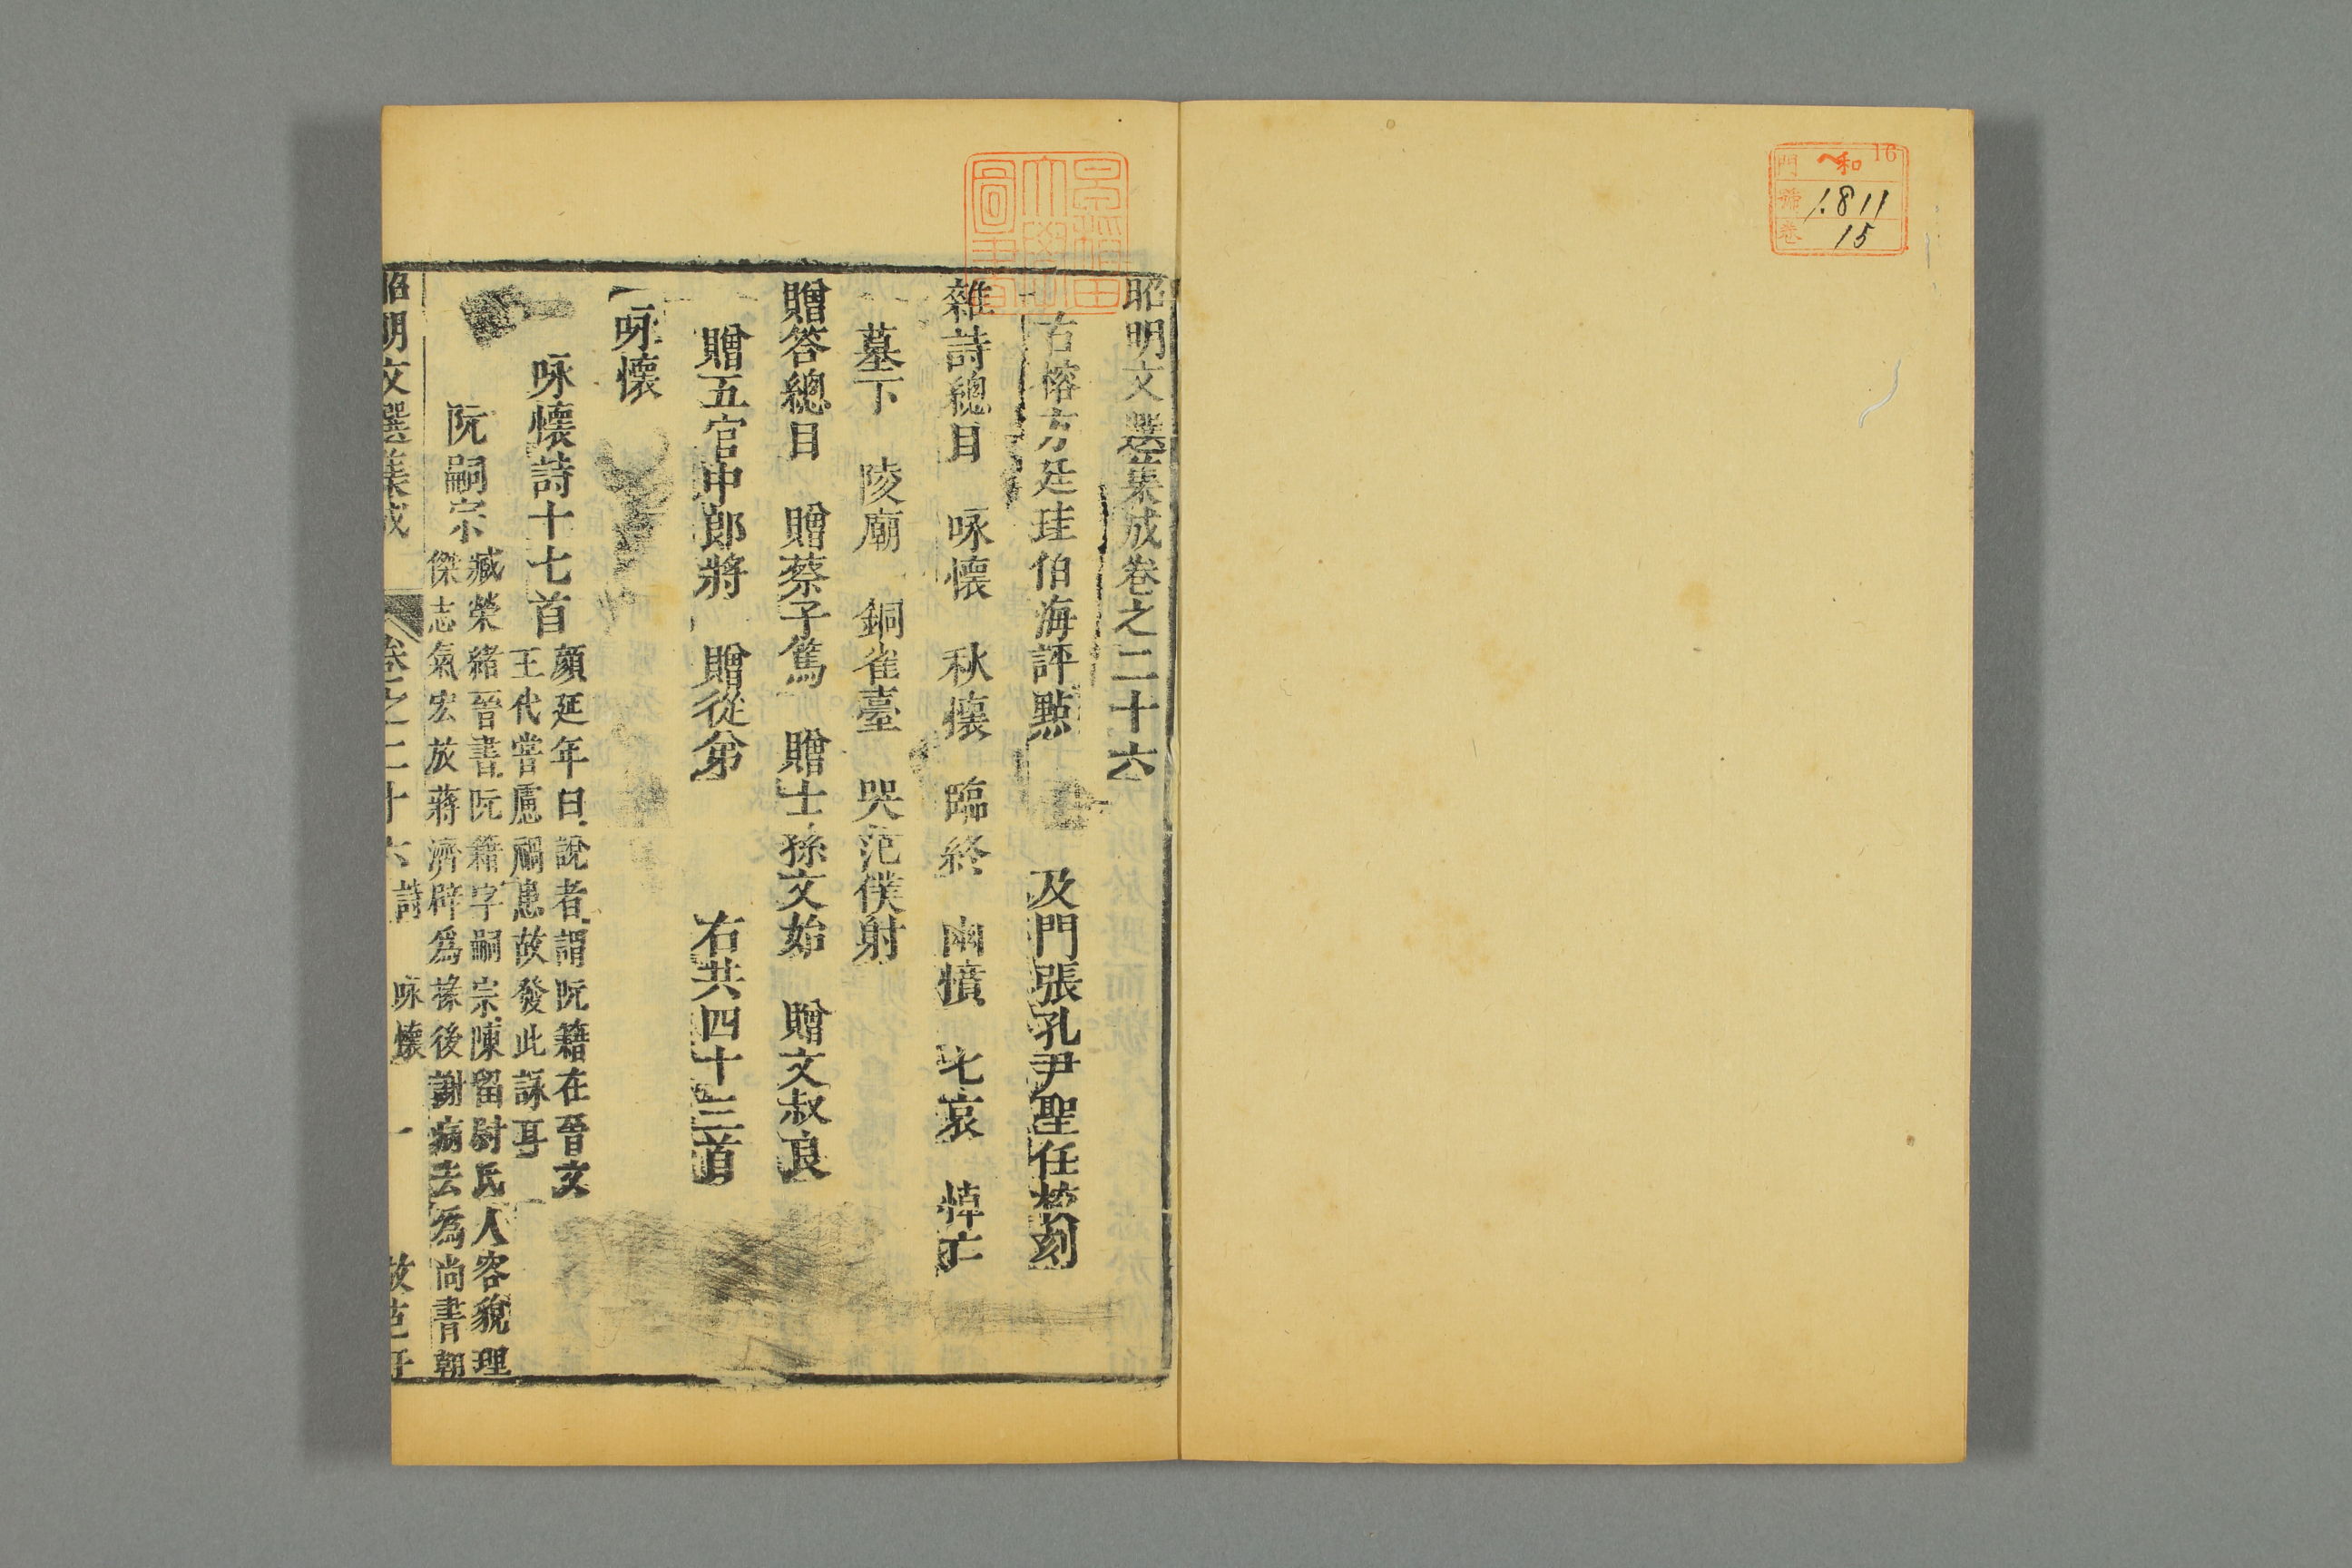 16
和
門
號 1811
卷 15
昭明文選集成卷之二十六
古榕方廷珪伯海評點 及門張孔尹聖任校刻
雜詩總目 咏懷 秋懷 臨終 幽憤 七哀 悼亡
墓下 陵廟 銅雀臺 哭范僕射
贈答總目 贈蔡子篤 贈士孫文始 贈文叔良
贈五官中郎將 贈從弟 右共四十三首
咏懷
咏懷詩十七首 顔延年曰說者謂阮籍在晉文
王代嘗慮禍患故發此詠耳
阮嗣宗 臧榮緒晉書阮籍字嗣宗陳留尉氏人容貌理
傑志氣宏放蔣濟辟爲掾後謝病去爲尚書郞
昭明文選集成 卷之二十六 詩 咏懷 一